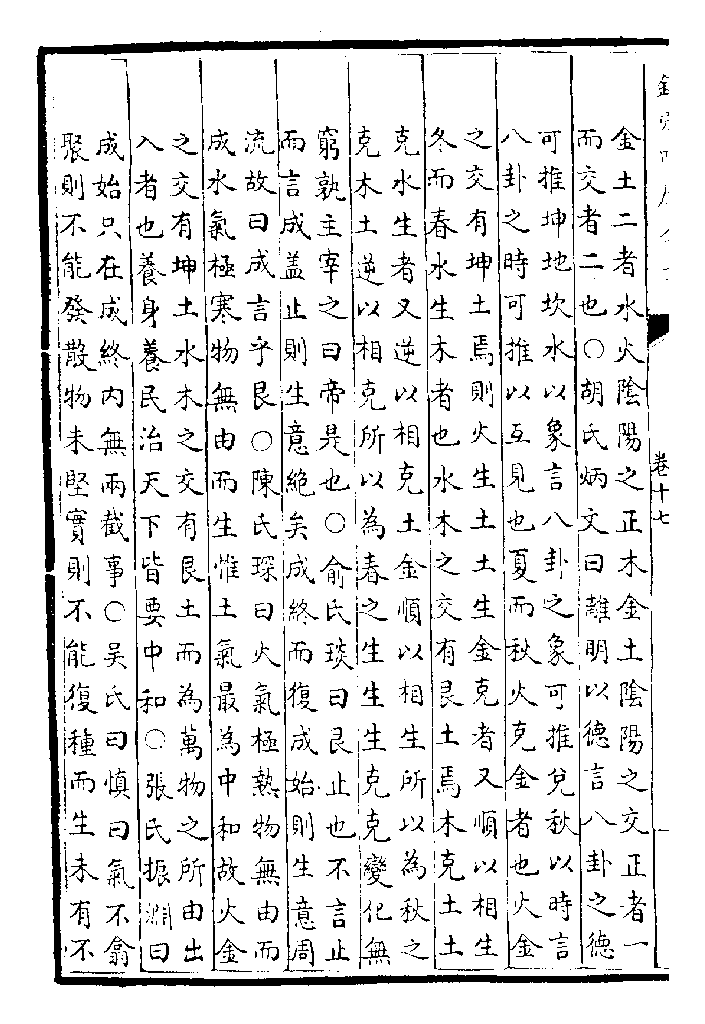 卷十七
金土二者水火陰陽之正木金土陰陽之交正者一
而交者二也〇胡氏炳文曰離明以德言八卦之德
可推坤地坎水以象言八卦之象可推兌秋以時言
八卦之時可推以互見也夏而秋火克金者也火金
之交有坤土焉則火生土土生金克者又順以相生
冬而春水生木者也水木之交有艮土焉木克土土
克水生者又逆以相克土金順以相生所以為秋之
克木土逆以相克所以為春之生生生克克變化無
窮孰主宰之曰帝是也〇俞氏琰曰艮止也不言止
而言成盖止則生意絶矣成終而復成始則生意周
流故曰成言乎艮〇陳氏琛曰火氣極熱物無由而
成水氣極寒物無由而生惟土氣最為中和故火金
之交有坤土水木之交有艮土而為萬物之所由出
入者也養身養民治天下皆要中和〇張氏振淵曰
成始只在成終内無兩截事〇吳氏曰慎曰氣不翕
聚則不能發散物未堅實則不能復種而生未有不